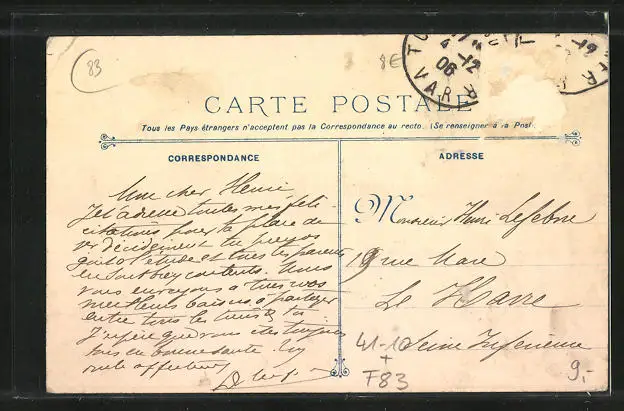 83
8€
T
4 -12
06
VAR
-12
CARTE POSTALE
Tous les Pays étrangers n'acceptent pas la Correspondance au recto. (Se renseigner à la Post
CORRESPONDANCE
ADRESSE
Mon cher Henri
Je t'adresse toutes mes féli-
citations pour la place de
1er décidément tu prends
goût à l'étude et tous tes parents
en sont très contents. Nous
vous envoyons à tous nos
meilleurs baisers à partager
entre tous les
J'espère que vous êtes toujours
tous en bonne santé.
Monsieur Henri Lefebvre
19 rue Mare
Le Havre
Seine Inférieure
41-10
+
F83
9,-